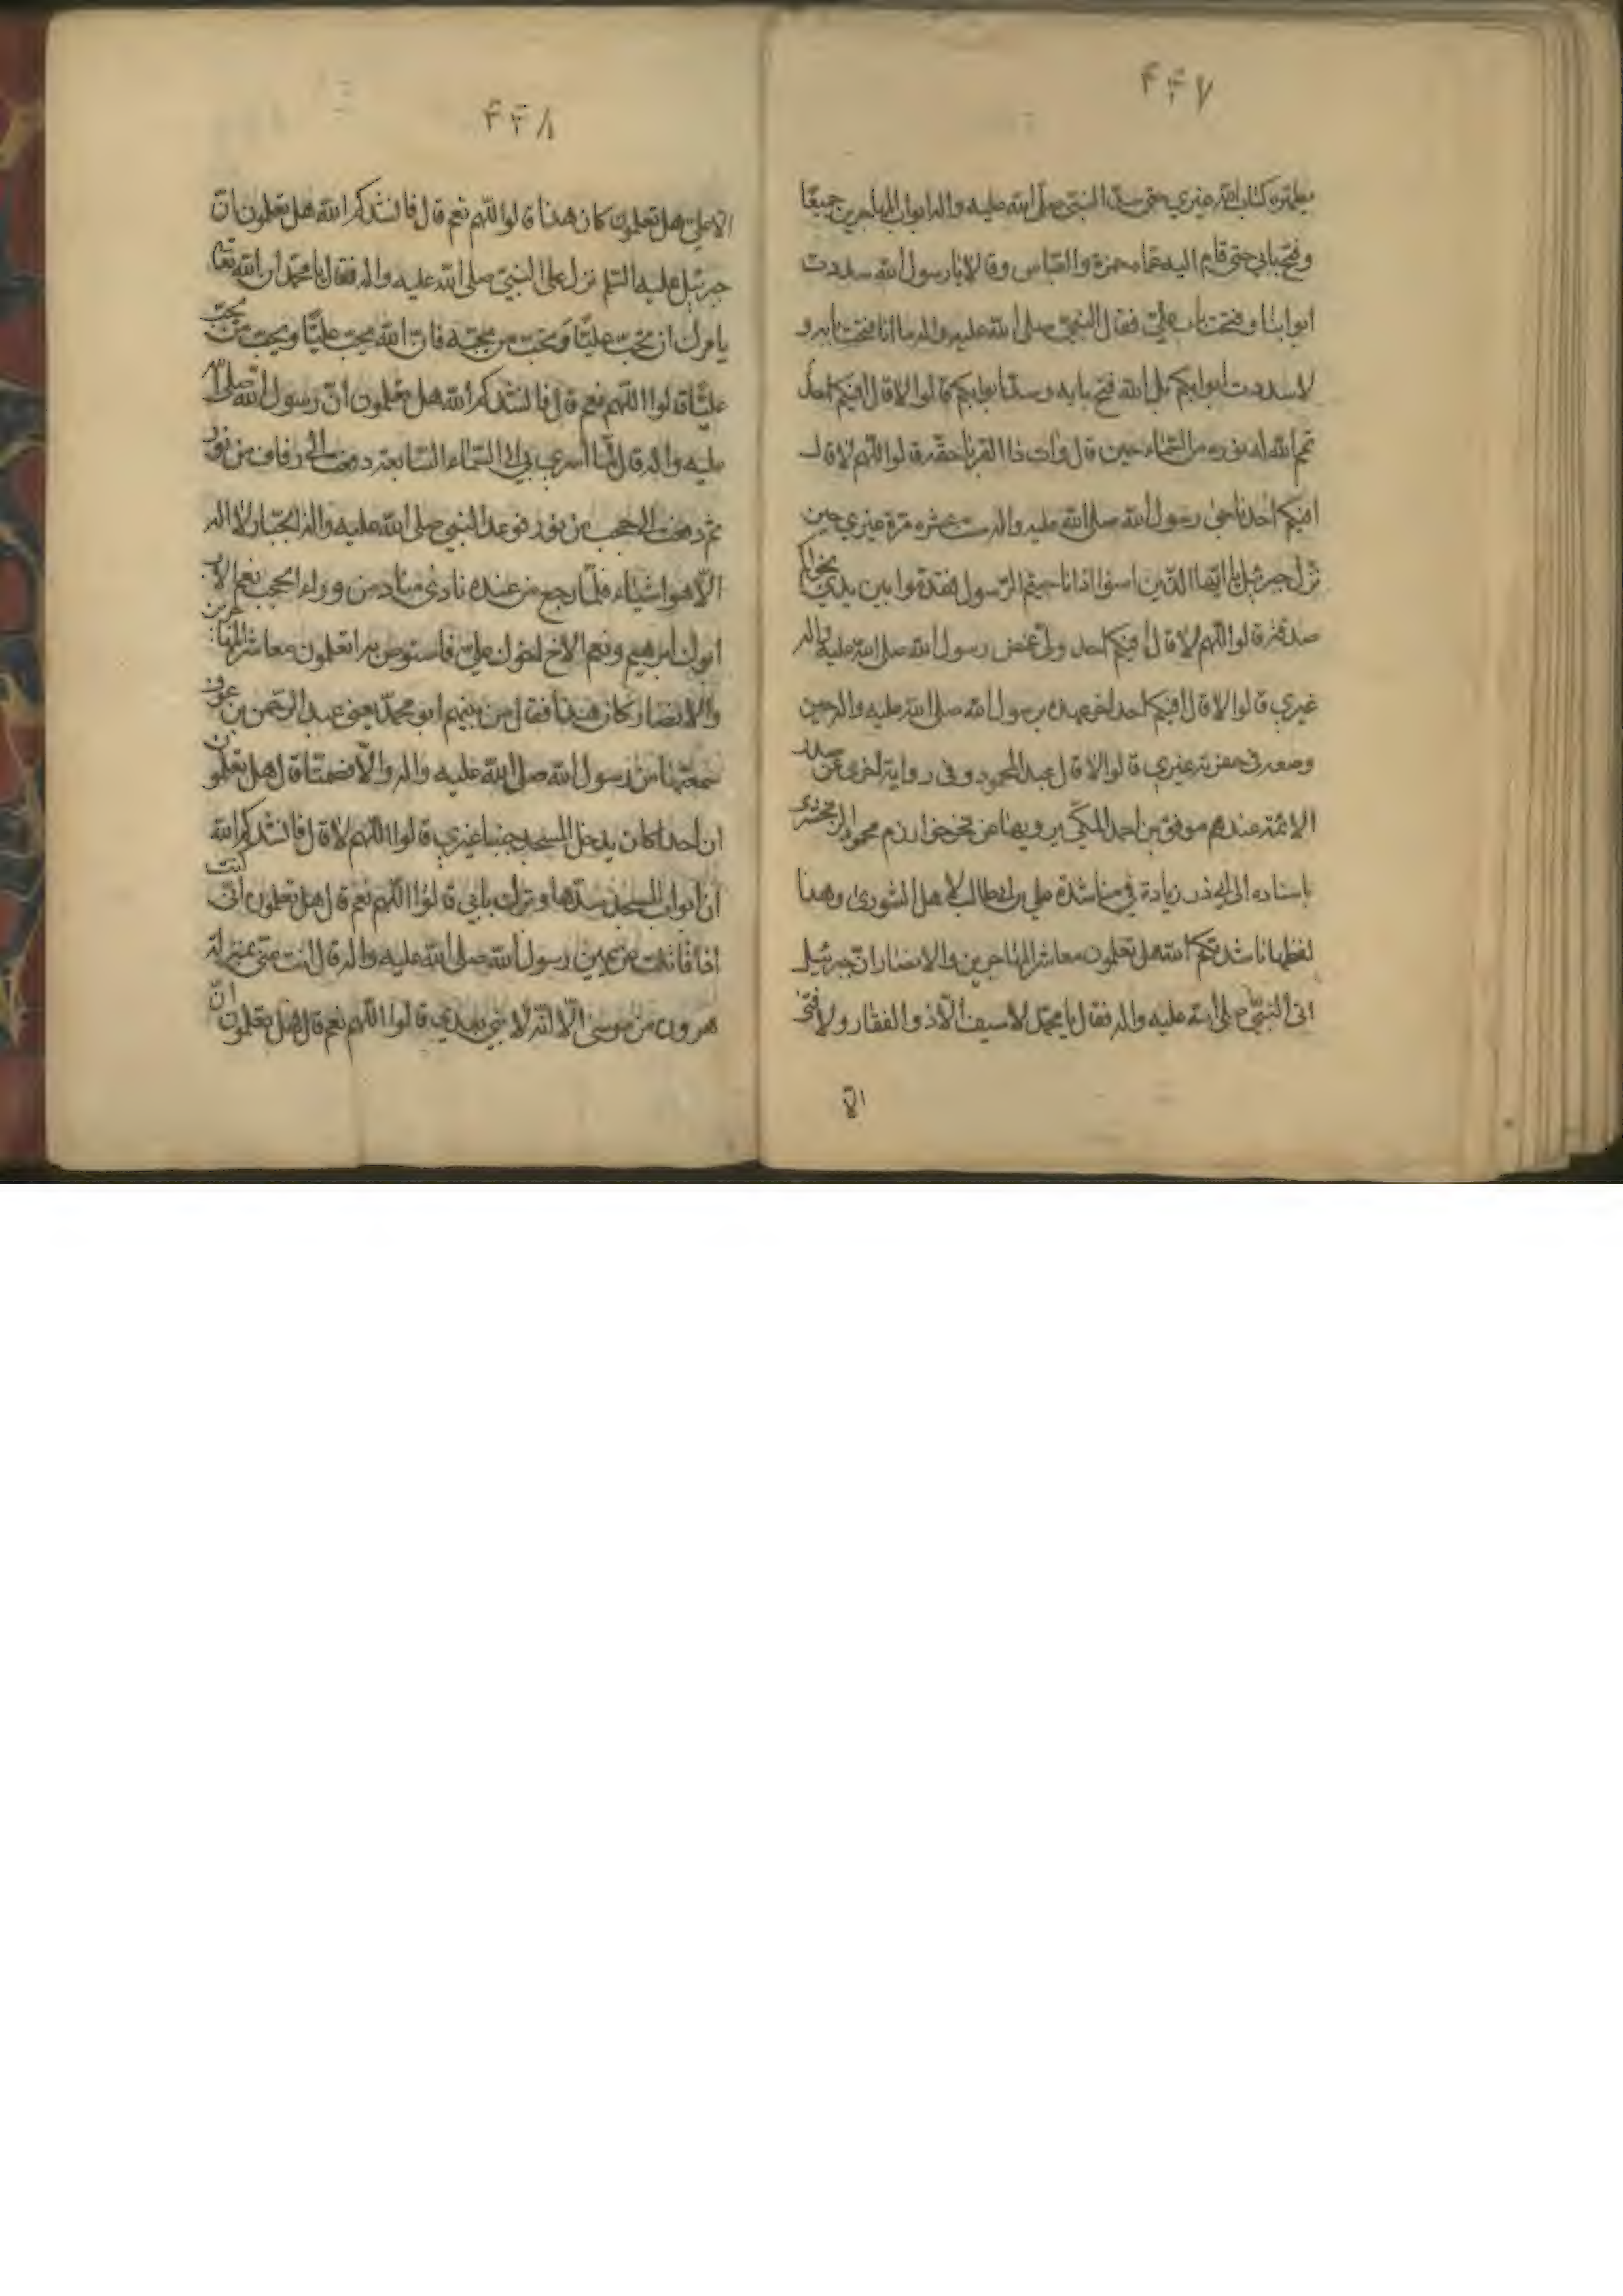 ۴۴۷
مطهره كتاب الله غيري حتى سد النبي صلى الله عليه واله ابواب المهاجرين جميعا
وفتح بابي حتى قام اليه عماه حمزة والعباس وقالا يا رسول الله سددت
ابوابنا وفتحت باب علي فقال النبي صلى الله عليه واله ما انا فتحت بابه و
لا سددت ابوابكم بل الله فتح بابه وسد ابوابكم قالوا لا قال افيكم احد
تمم الله له نوره من السماء حين قال وات ذا القربى حقه قالوا اللهم لا قال
افيكم احد ناجى رسول الله صلى الله عليه واله ست عشره مرة غيري حين
نزل جبرئيل يا ايها الذين امنوا اذا ناجيتم الرسول فقدموا بين يدي نجواكم
صدقة قالوا اللهم لا قال افيكم احد ولي غمض رسول الله صلى الله عليه واله
غيري قالوا لا قال افيكم احد اخر عهده برسول الله صلى الله عليه واله حين
وضعه في حفرته غيري قالوا لا قال عبد المحمود وفي رواية اخرى عن صدر
الائمة عندهم موفق بن احمد المكي يرويها عن فخر خوارزم محمود الزمخشري
باسناده الى ابي ذر زيادة في مناشدة علي بن ابي طالب لاهل الشورى وهذا
لفظها ناشدتكم الله هل تعلمون معاشر المهاجرين والانصار ان جبرئيل
اتى النبي صلى الله عليه واله فقال يا محمد لا سيف الا ذو الفقار ولا فتى
الا
۴۴۸
الا علي هل تعلمون كان هذا قالوا اللهم نعم قال فانشدكم الله هل تعلمون ان
جبرئيل عليه السلم نزل على النبي صلى الله عليه واله فقال يا محمد ان الله تعا
يامرك ان تحب عليا وتحب من يحبه فان الله يحب عليا ويحب من يحب
عليا قالوا اللهم نعم قال فانشدكم الله هل تعلمون ان رسول الله صلى الله
عليه واله قال لما اسري بي الى السماء السابعة دفعت الى رفارف من نور
ثم دفعت الى حجب من نور فوعد النبي صلى الله عليه واله الجبار لا اله
الا هو اشياء فلما رجع من عنده نادى مناد من وراء الحجب نعم الاب
ابوك ابرهيم ونعم الاخ اخوك علي فاستوص به اتعلمون معاشر المهاجرين
والانصار كان هذا فقال من بينهم ابو محمد يعني عبد الرحمن بن عوف
سمعتها من رسول الله صلى الله عليه واله والا فصمتا قال هل تعلمون
ان احدا كان يدخل المسجد جنبا غيري قالوا اللهم لا قال فانشدكم الله
ان ابواب المسجد سدها وترك بابي قالوا اللهم نعم قال هل تعلمون اني كنت
اذا قاتلت عن يمين رسول الله صلى الله عليه واله قال انت مني بمنزلة
هرون من موسى الا انه لا نبي بعدي قالوا اللهم نعم قال فهل تعلمون ان